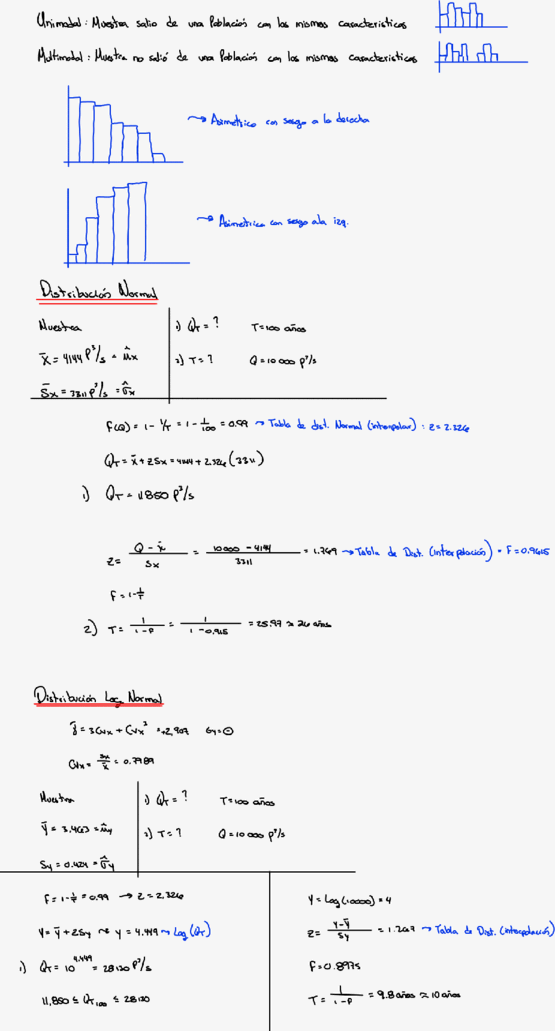 Unimodal: Muestra salio de una Población con las mismas caracteristicas
Multimodal: Muestra no salió de una Población con las mismas caracteristicas
→ Asimetrico con sesgo a la derecha
→ Asimetrica con sesgo a la izq.
Distribución Normal
Muestra
1) Qт = ? T=100 años
x̄ = 4144 p³/s = μ̂x
2) T = ? Q=10 000 p³/s
S̄x = 3311 p³/s = σ̂x
F(Q) = 1 - 1/T = 1 - 1/100 = 0.99 → Tabla de dist. Normal (interpolar) : z = 2.326
Qт = x̄ + zSx = 4144 + 2.326 (3311)
1) Qт = 11850 p³/s
z = (Q - x̄)/Sx = (10000 - 4144)/3311 = 1.769 → Tabla de Dist. (interpolación) = F = 0.9615
F = 1 - 1/T
2) T = 1/(1-P) = 1/(1-0.9615) = 25.97 ≈ 26 años
Distribución Log Normal
ĝ = 3Cvx + Cvx³ = +2.907 Gy = 0
Cvx = Sx/x̄ = 0.7989
Muestra
1) Qт = ? T=100 años
ȳ = 3.463 = μ̂y
2) T = ? Q=10 000 p³/s
Sy = 0.424 = σ̂y
F = 1 - 1/T = 0.99 → z = 2.326
y = ȳ + zSy ~ y = 4.449 → Log (Qт)
1) Qт = 10^4.449 = 28120 p³/s
11,850 ≤ Qт100 ≤ 28120
y = Log (10000) = 4
z = (y - ȳ)/Sy = 1.267 → Tabla de Dist. (interpolación)
F = 0.8975
T = 1/(1-P) = 9.8 años ≈ 10 años